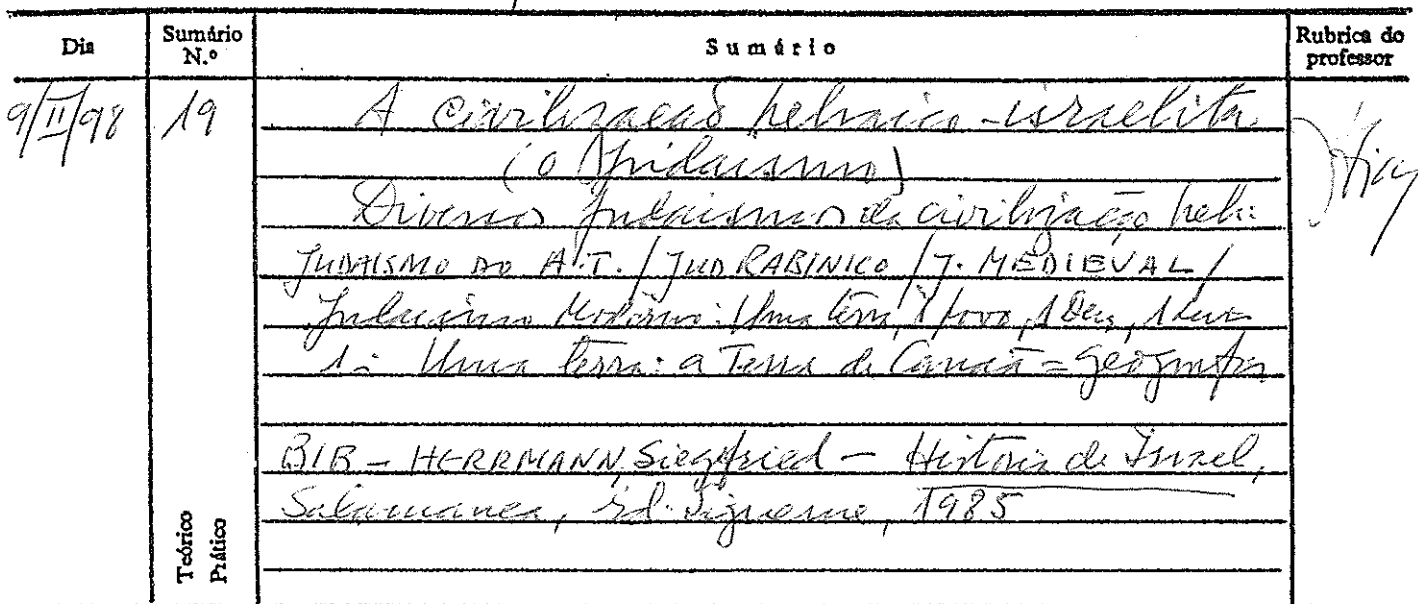 Dia Sumário N.º Sumário Rubrica do professor
9/II/98 19 A civilização hebraico-israelita
(o Judaismo)
Diversos Judaismos da civilização heb:
JUDAISMO DO A.T. / JUD RABINICO / J. MEDIEVAL /
Judaismo Moderno: Uma terra, 1 povo, 1 Deus, 1
1- Uma terra: a Terra de Canaã = geografia
BIB - HERRMANN, Siegfried - Historia de Israel,
Salamanca, Ed. Sigueme, 1985
Teórico
Prático